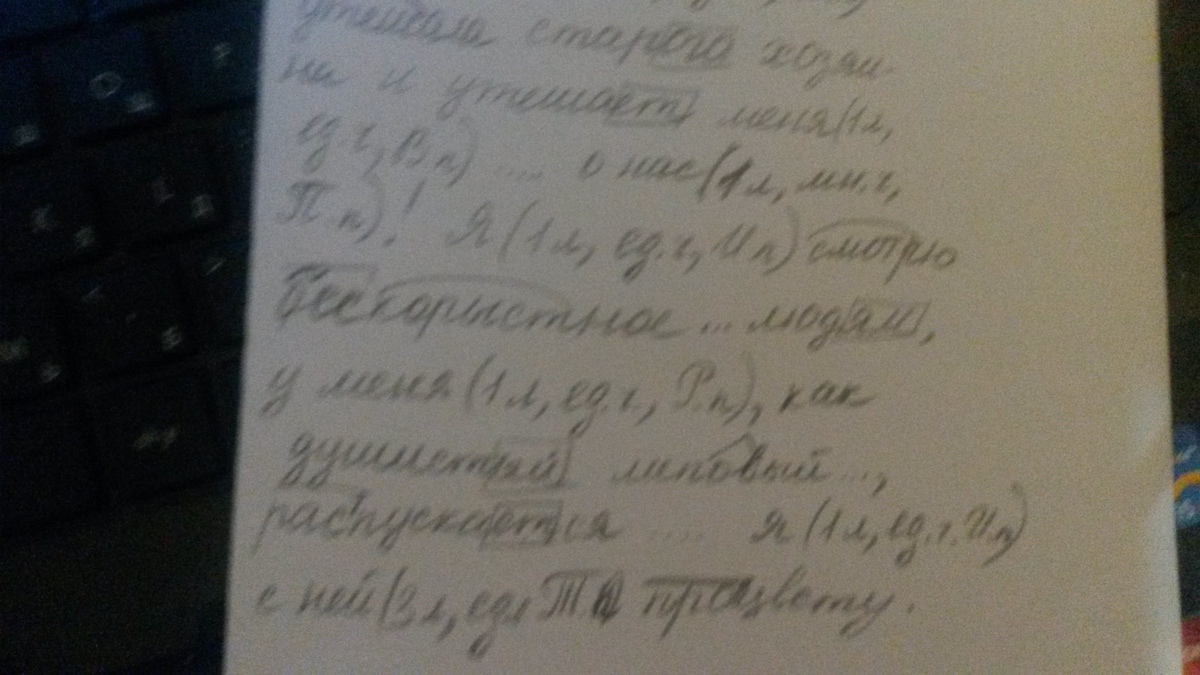 утешала старого хозяи-
на и утешает меня (1 л,
ед.ч, В.п) .... о нас (1 л, мн.ч,
П.п)! Я (1 л, ед.ч, И.п) смотрю
бескорыстное ... людям,
у меня (1 л, ед.ч., Р.п), как
душистый липовый ...,
распускается .... я (1 л, ед.ч. И.п)
с ней (3 л, ед Т.п произвету.